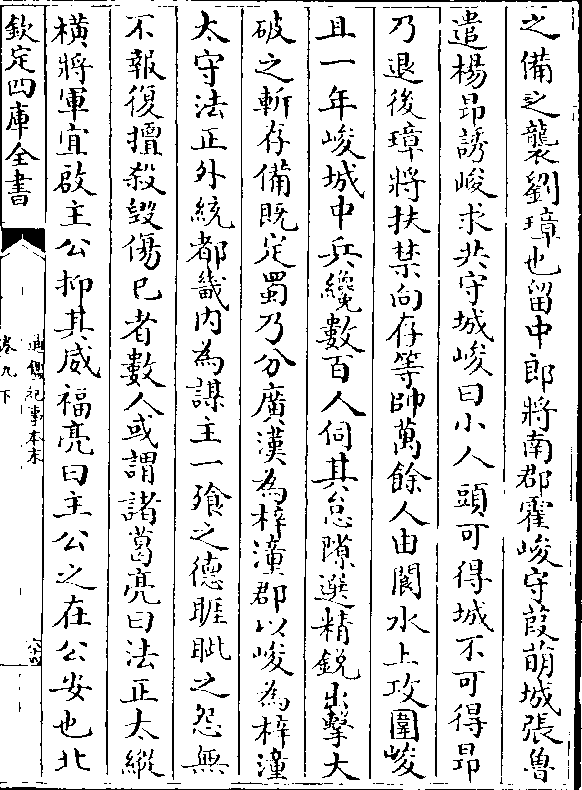 之備之襲劉璋也留中郎將南郡霍峻守葭萌城張魯
遣楊昻誘峻求共守城峻曰小人頭可得城不可得昻
乃退後璋將扶禁向存等帥萬餘人由閬水上攻圍峻
且一年峻城中兵纔數百人伺其怠隙選精鋭出擊大
破之斬存備既定蜀乃分廣漢為梓潼郡以峻為梓潼
太守法正外統都畿内為謀主一飱之德睚眦之怨無
不報復擅殺毀傷已者數人或謂諸葛亮曰法正太縱
橫將軍宜啟主公抑其威福亮曰主公之在公安也北
欽定四庫全書
通鑑紀事本末
卷九下